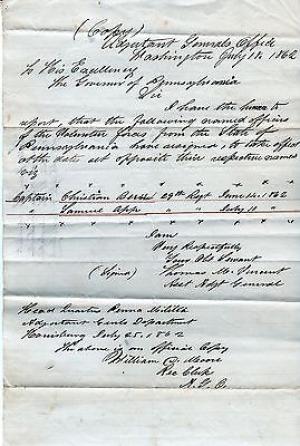 (Copy)
Adjutant Generals Office
Washington July 18. 1862
To His Excellency
The Governor of Pennsylvania
Sir
I have the honor to
report, that the following named officers
of the Volunteer forces from the State of
Pennsylvania have resigned, to take effect
at the date set opposite their respective names
viz
" " " " " " "
Captain Christian 29th Regt June 1862
" Samuel App " " July 11 "
" " " " " " "
I am
Very Respectfully
Your Obt Servant
(Signed) Thomas M. Vincent
Asst Adjt General
Head Quarters Penna Militia
Adjutant Genls Department
Harrisburg July 25. 1862
The above is an official Copy
William
Rec Clerk
A. G. O.